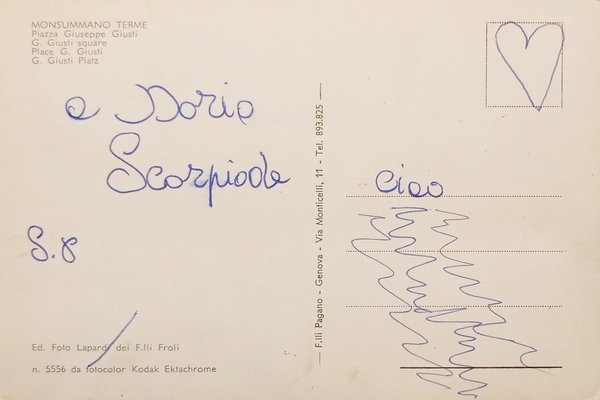 MONSUMMANO TERME
Piazza Giuseppe Giusti
G. Giusti square
Place G. Giusti
G. Giusti Platz
a Doria
Scorpiode
S.8
Ed. Foto Lapardi dei F.lli Froli
n. 5556 da fotocolor Kodak Ektachrome
F.lli Pagano - Genova - Via Monticelli, 11 - Tel. 893.825
Ciao